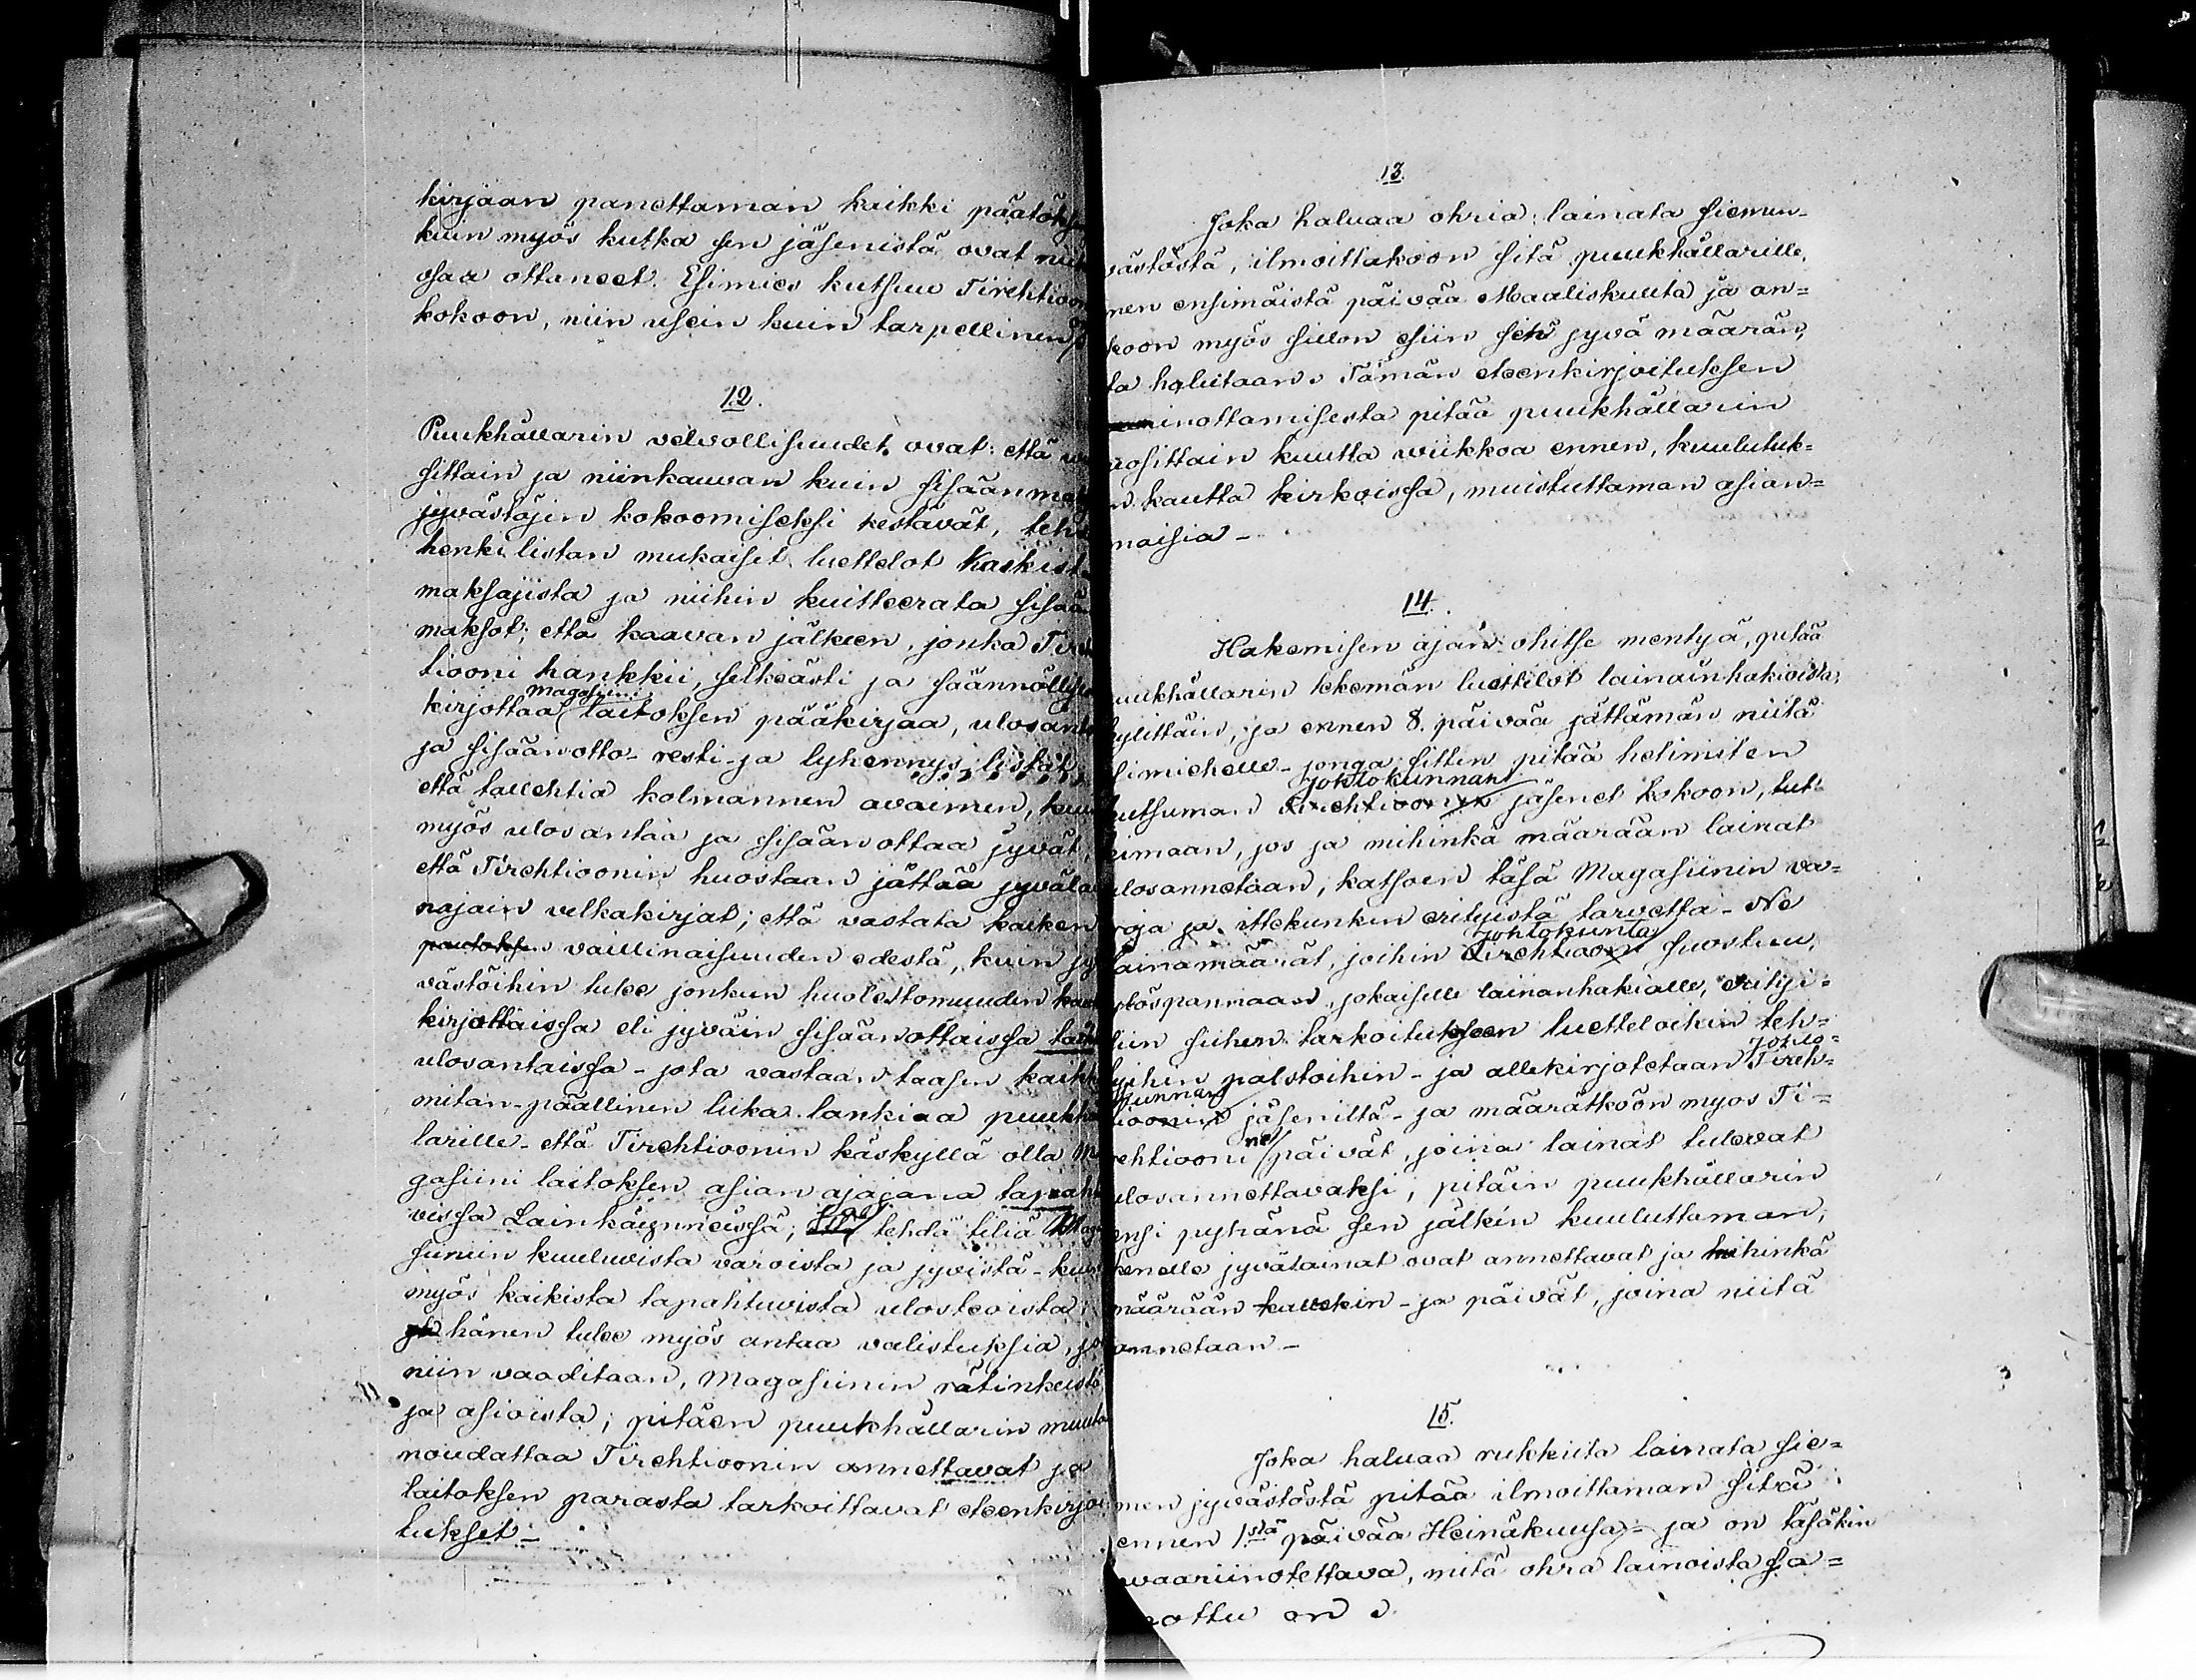 kirjaan panettaman kaikki päätöks
kuin myös kutka sen jäsenistä ovat niih
osaa ottaneet. Esimies kutsuu Tirehtioon
kokoon, niin usein kuin tarpellinen
12.
Puukhållarin velvollisuudet ovat: että vu
sittain ja niinkauvan kuin sisäänmak
jyvästöjen kokoomiseksi kestävät, teh
henkilistan mukaiset luettelot kaikist
maksajista ja niihin kuitteerata sisään
maksot; että kaavan jälkeen, jonka Tire
tiooni hankkii, selkeästi ja säännöllis
Magasiini
kirjottaa laitoksen pääkirjaa, ulosant
ja sisäänotto- resti- ja lyhennys listat,
että tallehtia kolmannen avaimen, kuin
myös ulosantaa ja sisäänottaa jyvät,
että Tirehtioonin huostaan jättää jyvälai
najain velkakirjat; että vastata kaiken
puutoksen vaillinaisuuden edestä, kuin jy
västöihin tulee jonkun huolestomuuden kau
kirjottaissa eli jyväin sisäänottaissa tai
ulosantaissa - jota vastaan taasen kaikk
mitan-päällinen liika lankiaa puukhå
larille - että Tirehtioonin käskyllä olla Ma
gasiini laitoksen asian ajajana tapaht
vissa Lainkäynneissä; tehdä tiliä Maga
siiniin kuuluvista varoista ja jyvistä - kuin
myös kaikista tapahtuvista ulosteoista;
hänen tulee myös antaa valistuksia, jo
niin vaaditaan, Magasiinin rätinkeistä
ja asioista; pitäen puukhållarin muuto
noudattaa Tirehtioonin annettavat ja
laitoksen parasta tarkoittavat eteenkirjoi
tukset -
13.
Joka haluaa ohria lainata siemen-
västöstä, ilmoittakoon sitä puukhållarille,
nen ensimäistä päivää Maaliskuuta ja an=
koon myös sillon esiin sen jyvä määrän,
ta halutaan. Tämän eteenkirjoituksen
inottamisesta pitää puukhållarin
uosittain kuutta viikkoa ennen, kuulutuk=
n kautta kirkoissa, muistuttaman asian=
maisia -
14.
Hakemisen ajan ohitse mentyä, pitää
uukhållarin tekemän luettelot lainainhakioista,
kylittäin, ja ennen 8. päivää jättämän niitä
simiehelle - jonga sitten pitää helimiten
johtokunnan
kutsuman Tirehtioonin jäsenet kokoon, tut=
kimaan, jos ja mihinkä määrään lainat
ulosannetaan, katsoen täsä Magasiinin va=
roja ja ittekunkin erityistä tarvetta - Ne
Johtokunta
lainamäärät, joihin Tirehtiooni suostuu,
ylöspannaan, jokaiselle lainanhakialle, erityi=
siin siihen tarkoitukseen luetteloihin teh=
Johto=
tyihin palstoihin - ja allekirjotetaan Tireh=
kunnan
tioonin jäseniltä - ja määrätköön myös Ti=
ne
rehtiooni päivät, joina lainat tulevat
ulosannettavaksi, pitäin puukhållarin
ensi pyhänä sen jälkin kuuluttaman,
kenelle jyvälainat ovat annettavat ja mihinkä
määrään kullekin - ja päivät, joina niitä
annetaan -
15.
Joka haluaa rukkiita lainata sie=
men jyvästöstä pitää ilmoittaman sitä
ennen 1stä päivää Heinäkuusa - ja on täsäkin
vaariinotettava, mitä ohra lainoista sa=
nottu on.